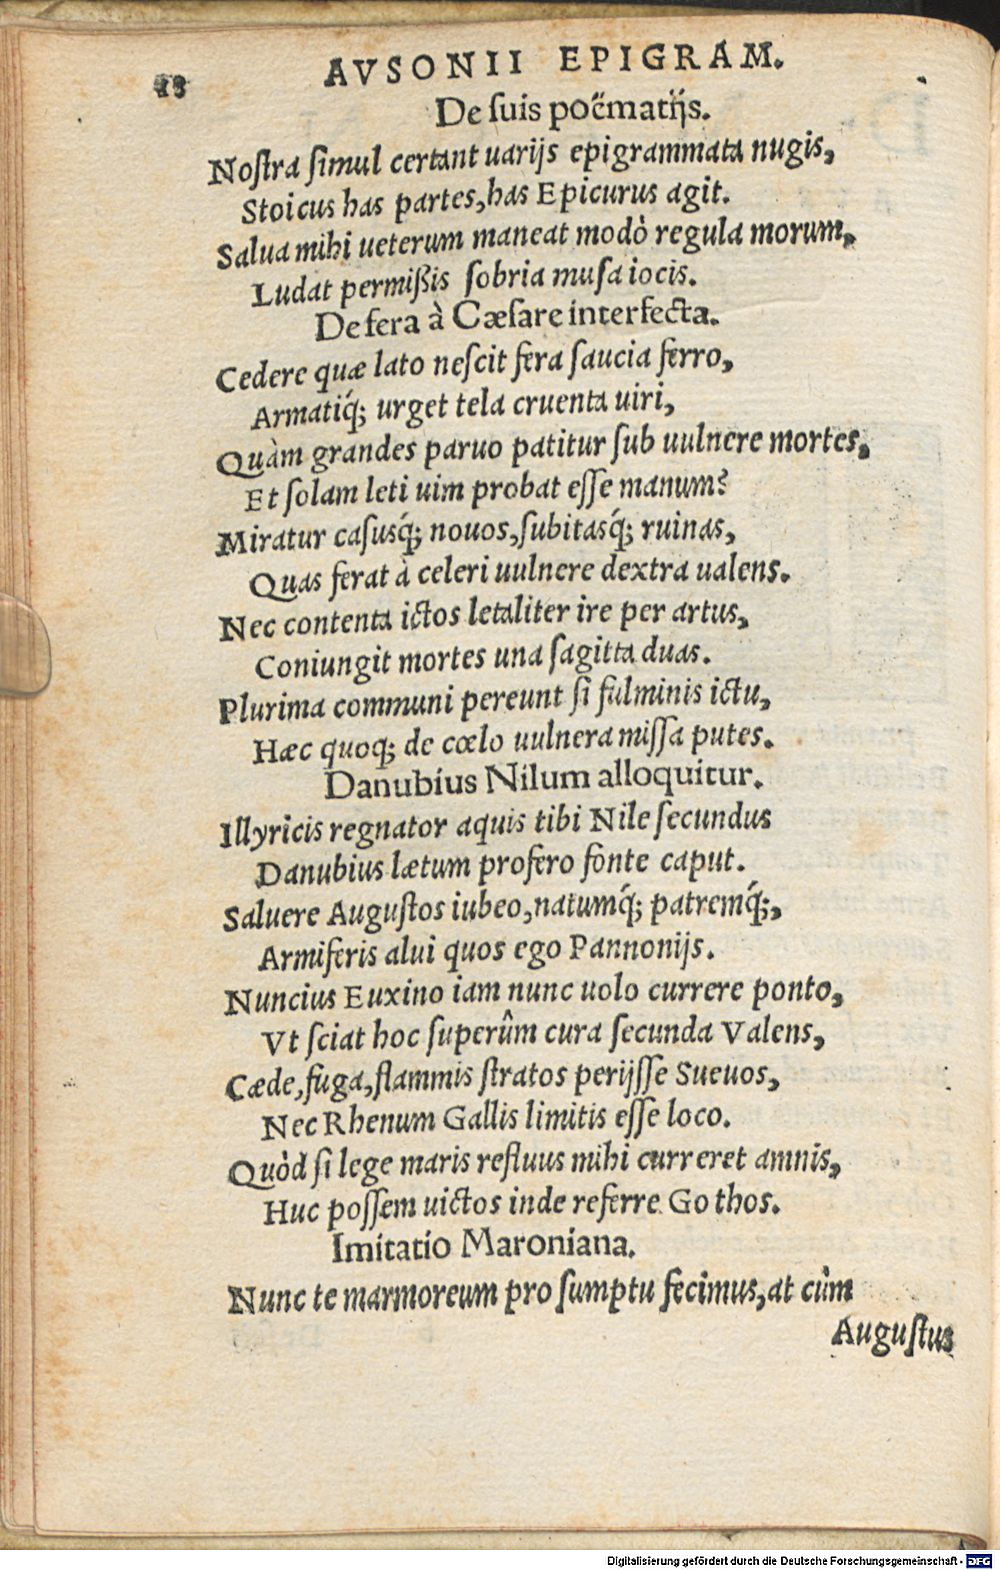 18
AVSONII EPIGRAM.
De ſuis poëmatijs.
Noſtra ſimul certant uarijs epigrammata nugis,
Stoicus has partes, has Epicurus agit.
Salua mihi ueterum maneat modò regula morum,
Ludat permißis ſobria muſa iocis.
De fera à Cæſare interfecta.
Cedere quæ lato neſcit fera ſaucia ferro,
Armatiq́; urget tela cruenta uiri,
Quàm grandes paruo patitur ſub uulnere mortes,
Et ſolam leti uim probat eſſe manum?
Miratur caſusq́; nouos, ſubitasq́; ruinas,
Quas ferat à celeri uulnere dextra ualens.
Nec contenta ictos letaliter ire per artus,
Coniungit mortes una ſagitta duas.
Plurima communi pereunt ſi fulminis ictu,
Hæc quoq; de cœlo uulnera miſſa putes.
Danubius Nilum alloquitur.
Illyricis regnator aquis tibi Nile ſecundus
Danubius lætum profero fonte caput.
Saluere Auguſtos iubeo, natumq́; patremq́;,
Armiferis alui quos ego Pannonijs.
Nuncius Euxino iam nunc uolo currere ponto,
Vt ſciat hoc ſuperûm cura ſecunda Valens,
Cæde, fuga, flammis ſtratos perijſſe Sueuos,
Nec Rhenum Gallis limitis eſſe loco.
Quòd ſi lege maris refluus mihi curreret amnis,
Huc poſſem uictos inde referre Gothos.
Imitatio Maroniana.
Nunc te marmoreum pro ſumptu fecimus, at cùm
Auguſtus
Digitalisierung gefördert durch die Deutsche Forschungsgemeinschaft - DFG